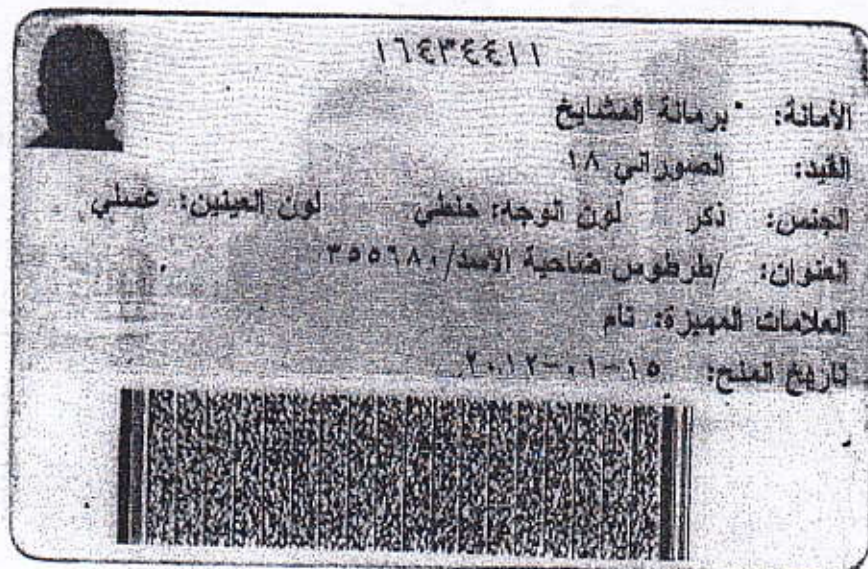 ١٦٤٣٤٤١١
الأمانة: برمانة المشايخ
القيد: الصوراني ١٨
الجنس: ذكر لون الوجه: حنطي لون العينين: عسلي
العنوان: /طرطوس ضاحية الاسد/٣٥٥٦٨٠
العلامات المميزة: تام
تاريخ المنح: ١٥-٠١-٢٠١٢